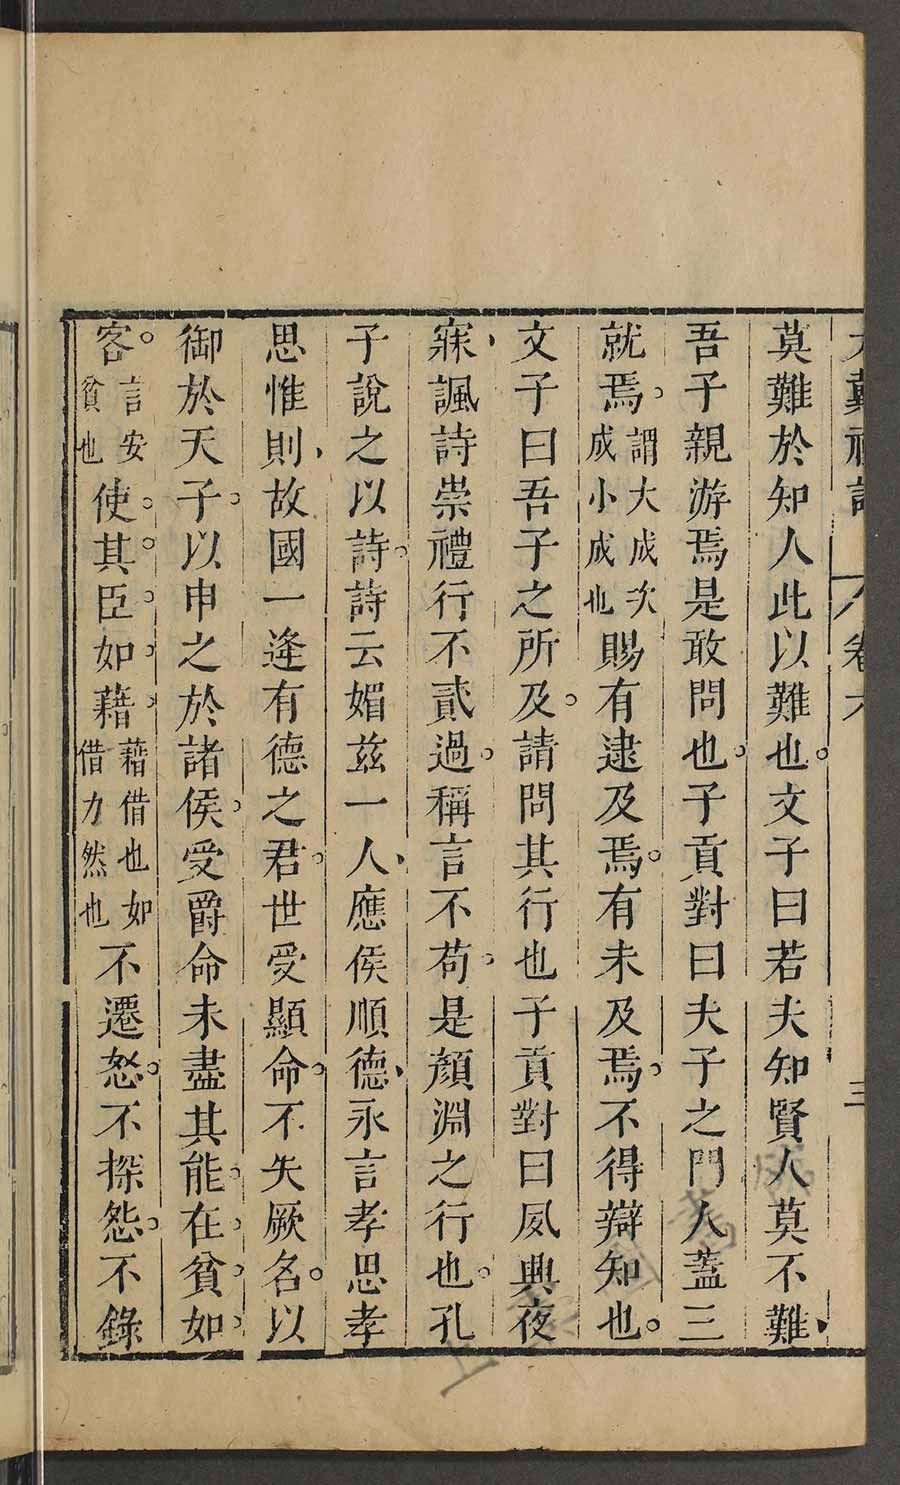 大戴禮記 卷六 三
莫難於知人此以難也。文子曰若夫知賢人莫不難、
吾子親游焉是敢問也。子貢對曰夫子之門人蓋三
就焉。謂大成次成小成也賜有逮及焉。有未及焉。不得辯知也。
文子曰吾子之所及。請問其行也子貢對曰夙興夜
寐、諷詩崇禮行不貳過。稱言不苟。是顏淵之行也。孔
子說之以詩。詩云媚茲一人、應侯順德、永言孝思孝
思惟則、故國一逢有德之君。世受顯命。不失厥名。以
御於天子。以申之於諸侯。受爵命未盡其能。在。貧。如。
客。言安貧也使。其。臣。如。藉。藉借也如借力然也不遷怒。不探怨。不錄